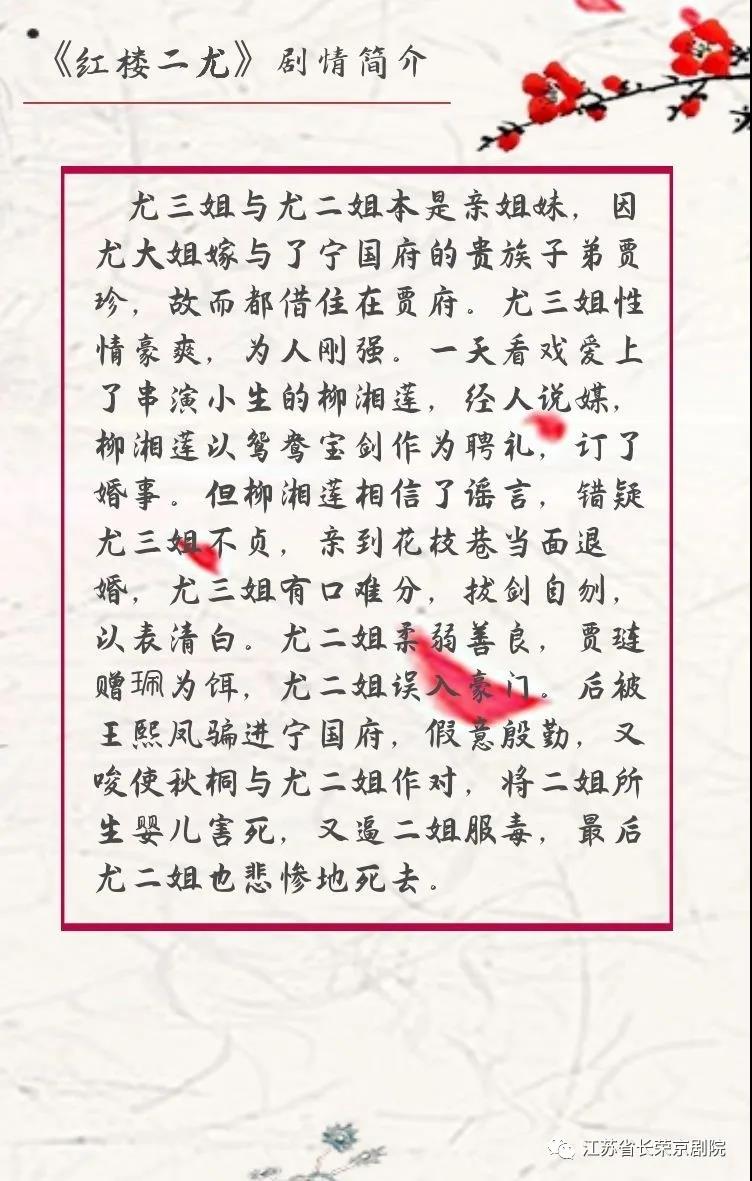 《红楼二尤》剧情简介
尤三姐与尤二姐本是亲姐妹，因
尤大姐嫁与了宁国府的贵族子弟贾
珍，故而都借住在贾府。尤三姐性
情豪爽，为人刚强。一天看戏爱上
了串演小生的柳湘莲，经人说媒，
柳湘莲以鸳鸯宝剑作为聘礼，订了
婚事。但柳湘莲相信了谣言，错疑
尤三姐不贞，亲到花枝巷当面退
婚，尤三姐有口难分，拔剑自刎，
以表清白。尤二姐柔弱善良，贾琏
赠珮为饵，尤二姐误入豪门。后被
王熙凤骗进宁国府，假意殷勤，又
唆使秋桐与尤二姐作对，将二姐所
生婴儿害死，又逼二姐服毒，最后
尤二姐也悲惨地死去。
江苏省长荣京剧院